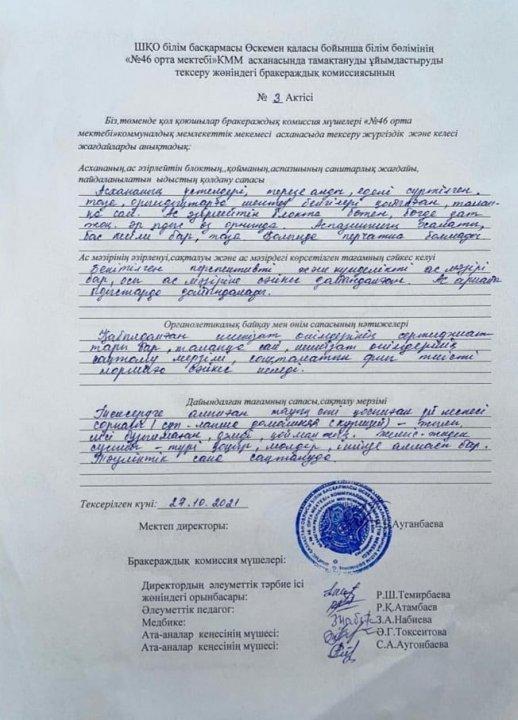 ШҚО білім басқармасы Өскемен қаласы бойынша білім бөлімінің
«№46 орта мектебі»КММ асханасында тамақтануды ұйымдастыруды
тексеру жөніндегі бракераждық комиссиясының
№ 3 Актісі
Біз,төменде қол қоюшылар бракераждық комиссия мүшелері «№46 орта
мектебі»коммуналдық мемлекеттік мекемесі асханасыда тексеру жүргіздік және келесі
жағдайларды анықтадық:
Асхананың,ас әзірлейтін блоктың,,қойманың,аспазшының санитарлық жағдайы,
пайдаланылатын ыдыстың қолдану сапасы
Асхананың үстелдері, терезе алды, едені сүртілген,
таза, орындықтарда
сай. Ас әзірлейтін блокта бөтен, бөгде зат
жоқ. Әр орнында. Аспазшының
бас киімі бар, таза. перчатка
Ас мәзірінің әзірленуі,сақталуы және ас мәзірдегі көрсетілген тағамның сәйкес келуі
Бекітілген перспективті және күнделікті ас мәзірі
бар, осы ас мәзіріне сәйкес дайындалған. Ас арнайы
ыдыстарда дайындалады.
Органолетикалық байқау мен өнім сапасының нәтижелері
Қабылданған шикізат өнімдерінің сертификат
тары бар, талапқа сай, шикізат өнімдерінің
сақталу мерзімі, тиісті
нормаға сәйкес келеді.
Дайындалған тағамның сапасы,сақталу мерзімі
Тексеруде алынған тауық еті қосылған үй кеспесі
сорпасы (суп - лапша домашняя с курицей) -
иісі бұзылмаған, дәмді, жеміс-жидек
сусыны - түсі мөлдір, ішінде алмасы бар.
Тәуліктік сақталуда
Тексерілген күні: 27.10.2021
Мектеп директоры: Ауганбаева
Бракераждық комиссия мүшелері:
Директордың әлеуметтік тәрбие ісі
жөніндегі орынбасары: Р.Ш.Темирбаева
Әлеуметтік педагог: Р.Қ.Атамбаев
Медбике: З.А.Набиева
Ата-аналар кеңесінің мүшесі: Ә.Г.Токсеитова
Ата-аналар кеңесінің мүшесі: С.А.Аугонбаева